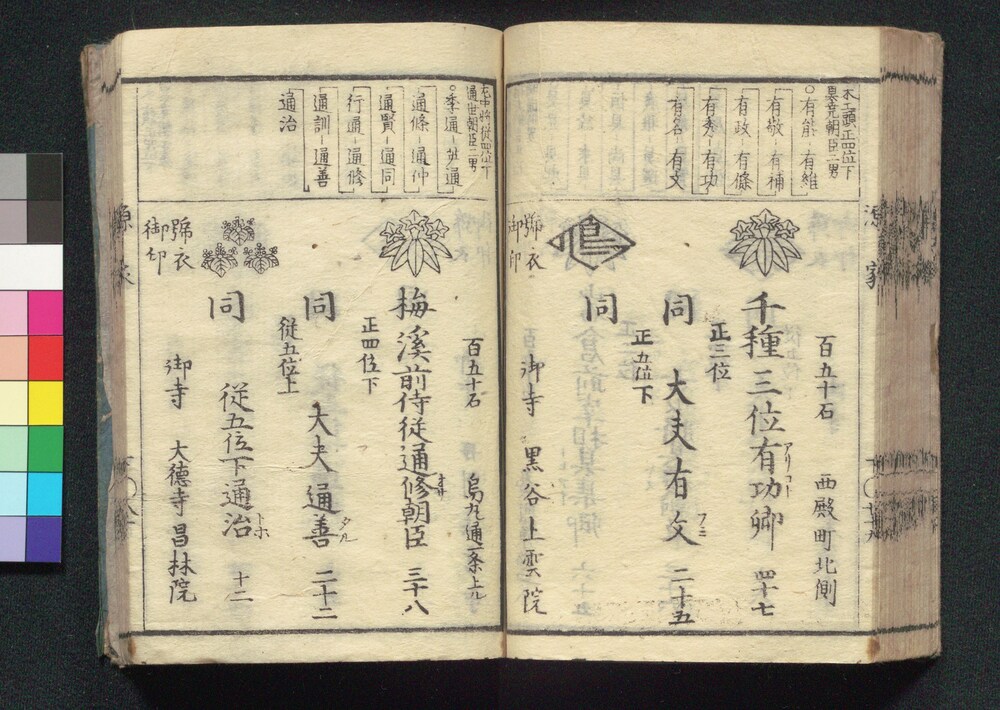 源家
木工頭正四位下
基亮朝臣二男
○有能－有維
有敬－有補
有政－有條
有秀－有功
有名－有文
百五十石 西殿町北側
千種三位有功卿 四十七
アリコト
正三位
同 大夫有文 二十五
フミ
正五位下
同
御寺 黒谷上雲院
號衣
御印
左中将従四位下
通世朝臣二男
○季通－英通
通條－通仲
通賢－通同
行通－通修
通訓－通善
通治
百五十石 烏丸通一条上ル
梅溪前侍従通修朝臣 三十八
オサ
正四位下
同 大夫通善 二十二
タル
従五位上
同 従五位下通治 十二
トホ
御寺 大德寺昌林院
號衣
御印
源家